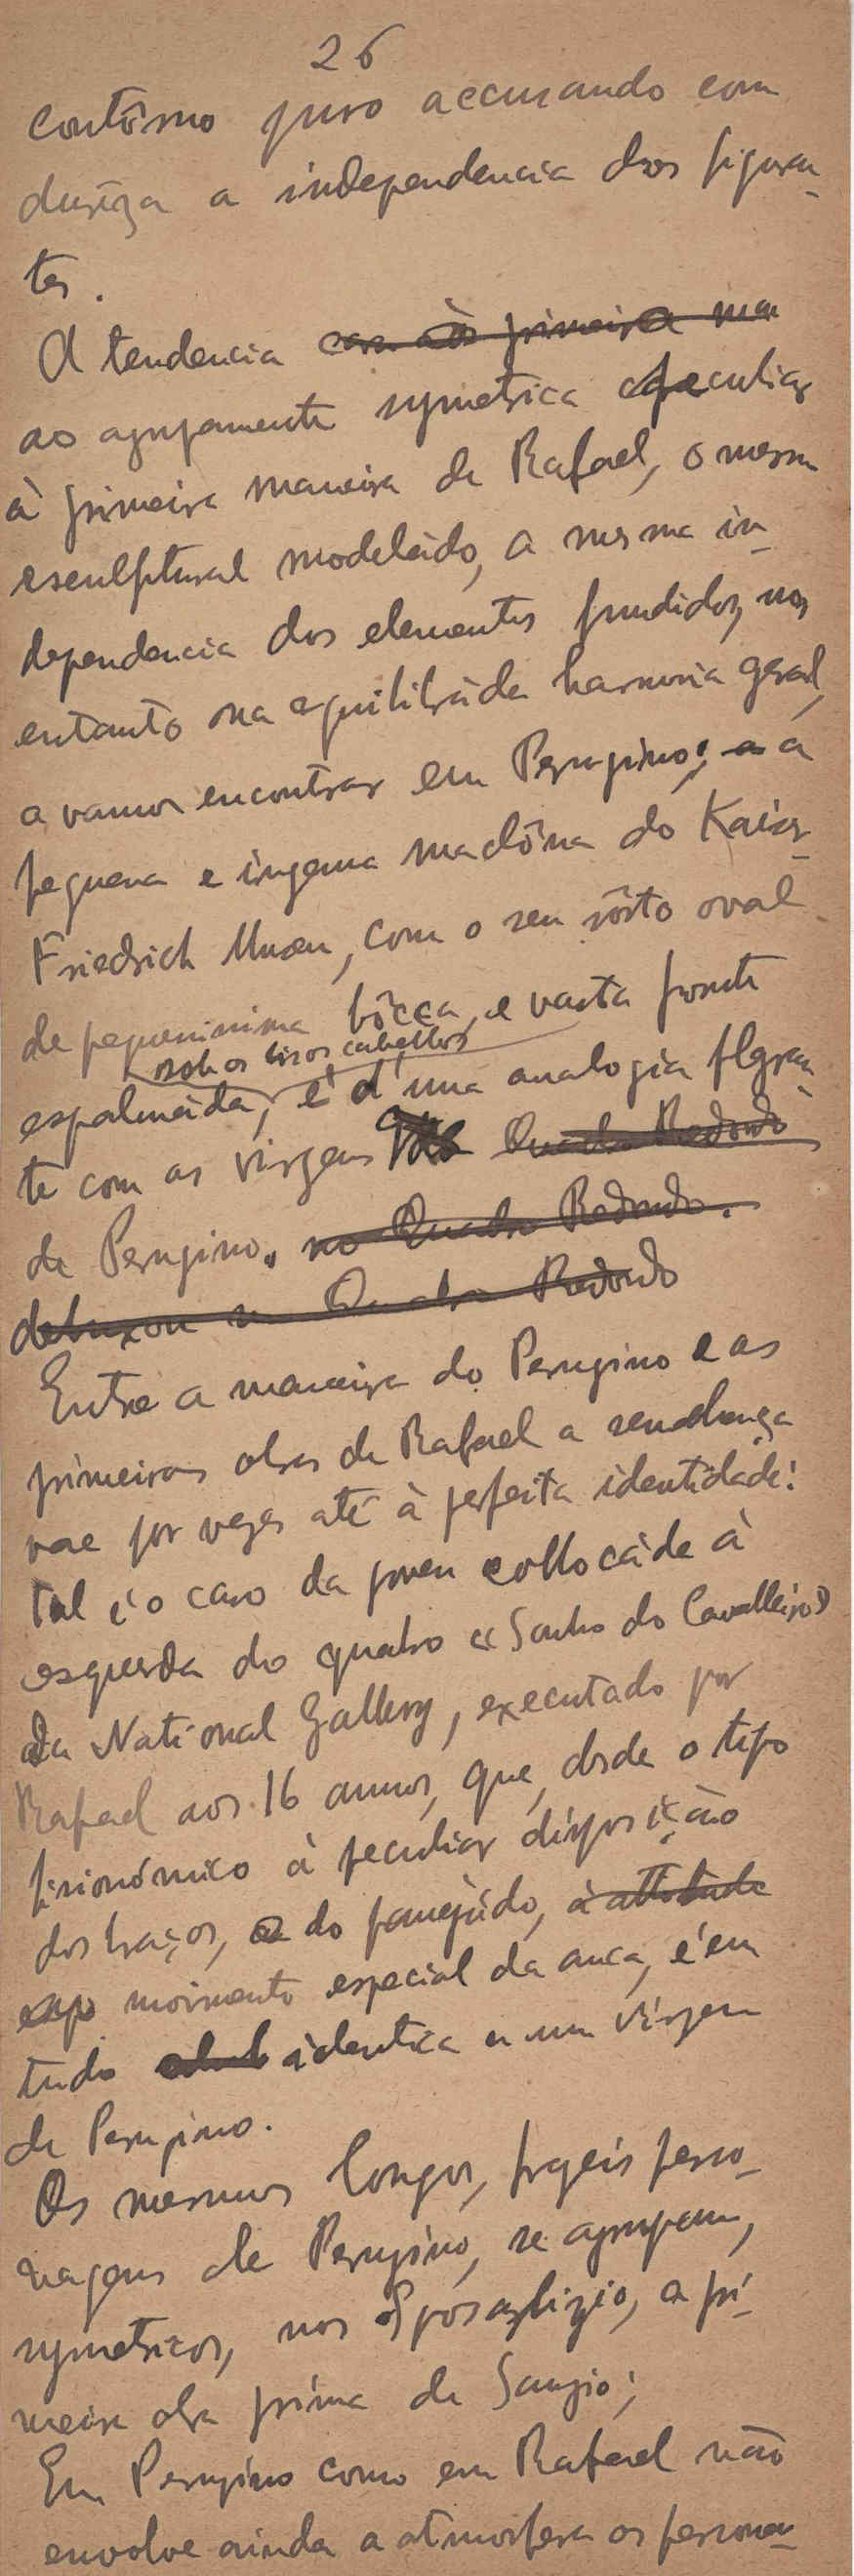 26
contôrno puro accusando com
durêza a independencia dos figuran-
tes.
A tendencia
ao agrupamento symetrica peculiar
à primeira maneira de Rafael, o mesmo
esculptural modeládo, a mesma in-
dependencia dos elementos fundidos, no
entanto na equilibráda harmonia geral,
a vamos encontrar em Perugino; a
pequena e ingenua madôna do Kaiser-
Friedrich Museu, com o seu rôsto oval
de pequenissima bôcca, e vasta fronte
sob os lisos cabellos
espalmáda, é d'uma analogia flgran-
te com as virgens
de Perugino. no Quadro Redondo.
debuxou no Quadro Redondo
Entre a maneira do Perugino e as
primeiras obras de Rafael a semelhança
vae por vezes até à perfeita identidade:
tal é o caso da joven collocáda à
esquerda do quadro «Sonho do Cavalleiro»
da National Gallery, executado por
Rafael aos 16 annos, que, desde o tipo
fisionómico à peculiar disposição
dos braços, e do panejádo, à attitude
movimento especial da anca, é em
tudo identica a uma Virgem
de Perugino.
Os mesmos longos, frageis perso-
nagens de Perugino, se agrupam,
symetricos, nos Sposalizio, a pri-
meira obra prima de Sanzio;
Em Perugino como em Rafael não
envolve ainda a atmosfera os persona-